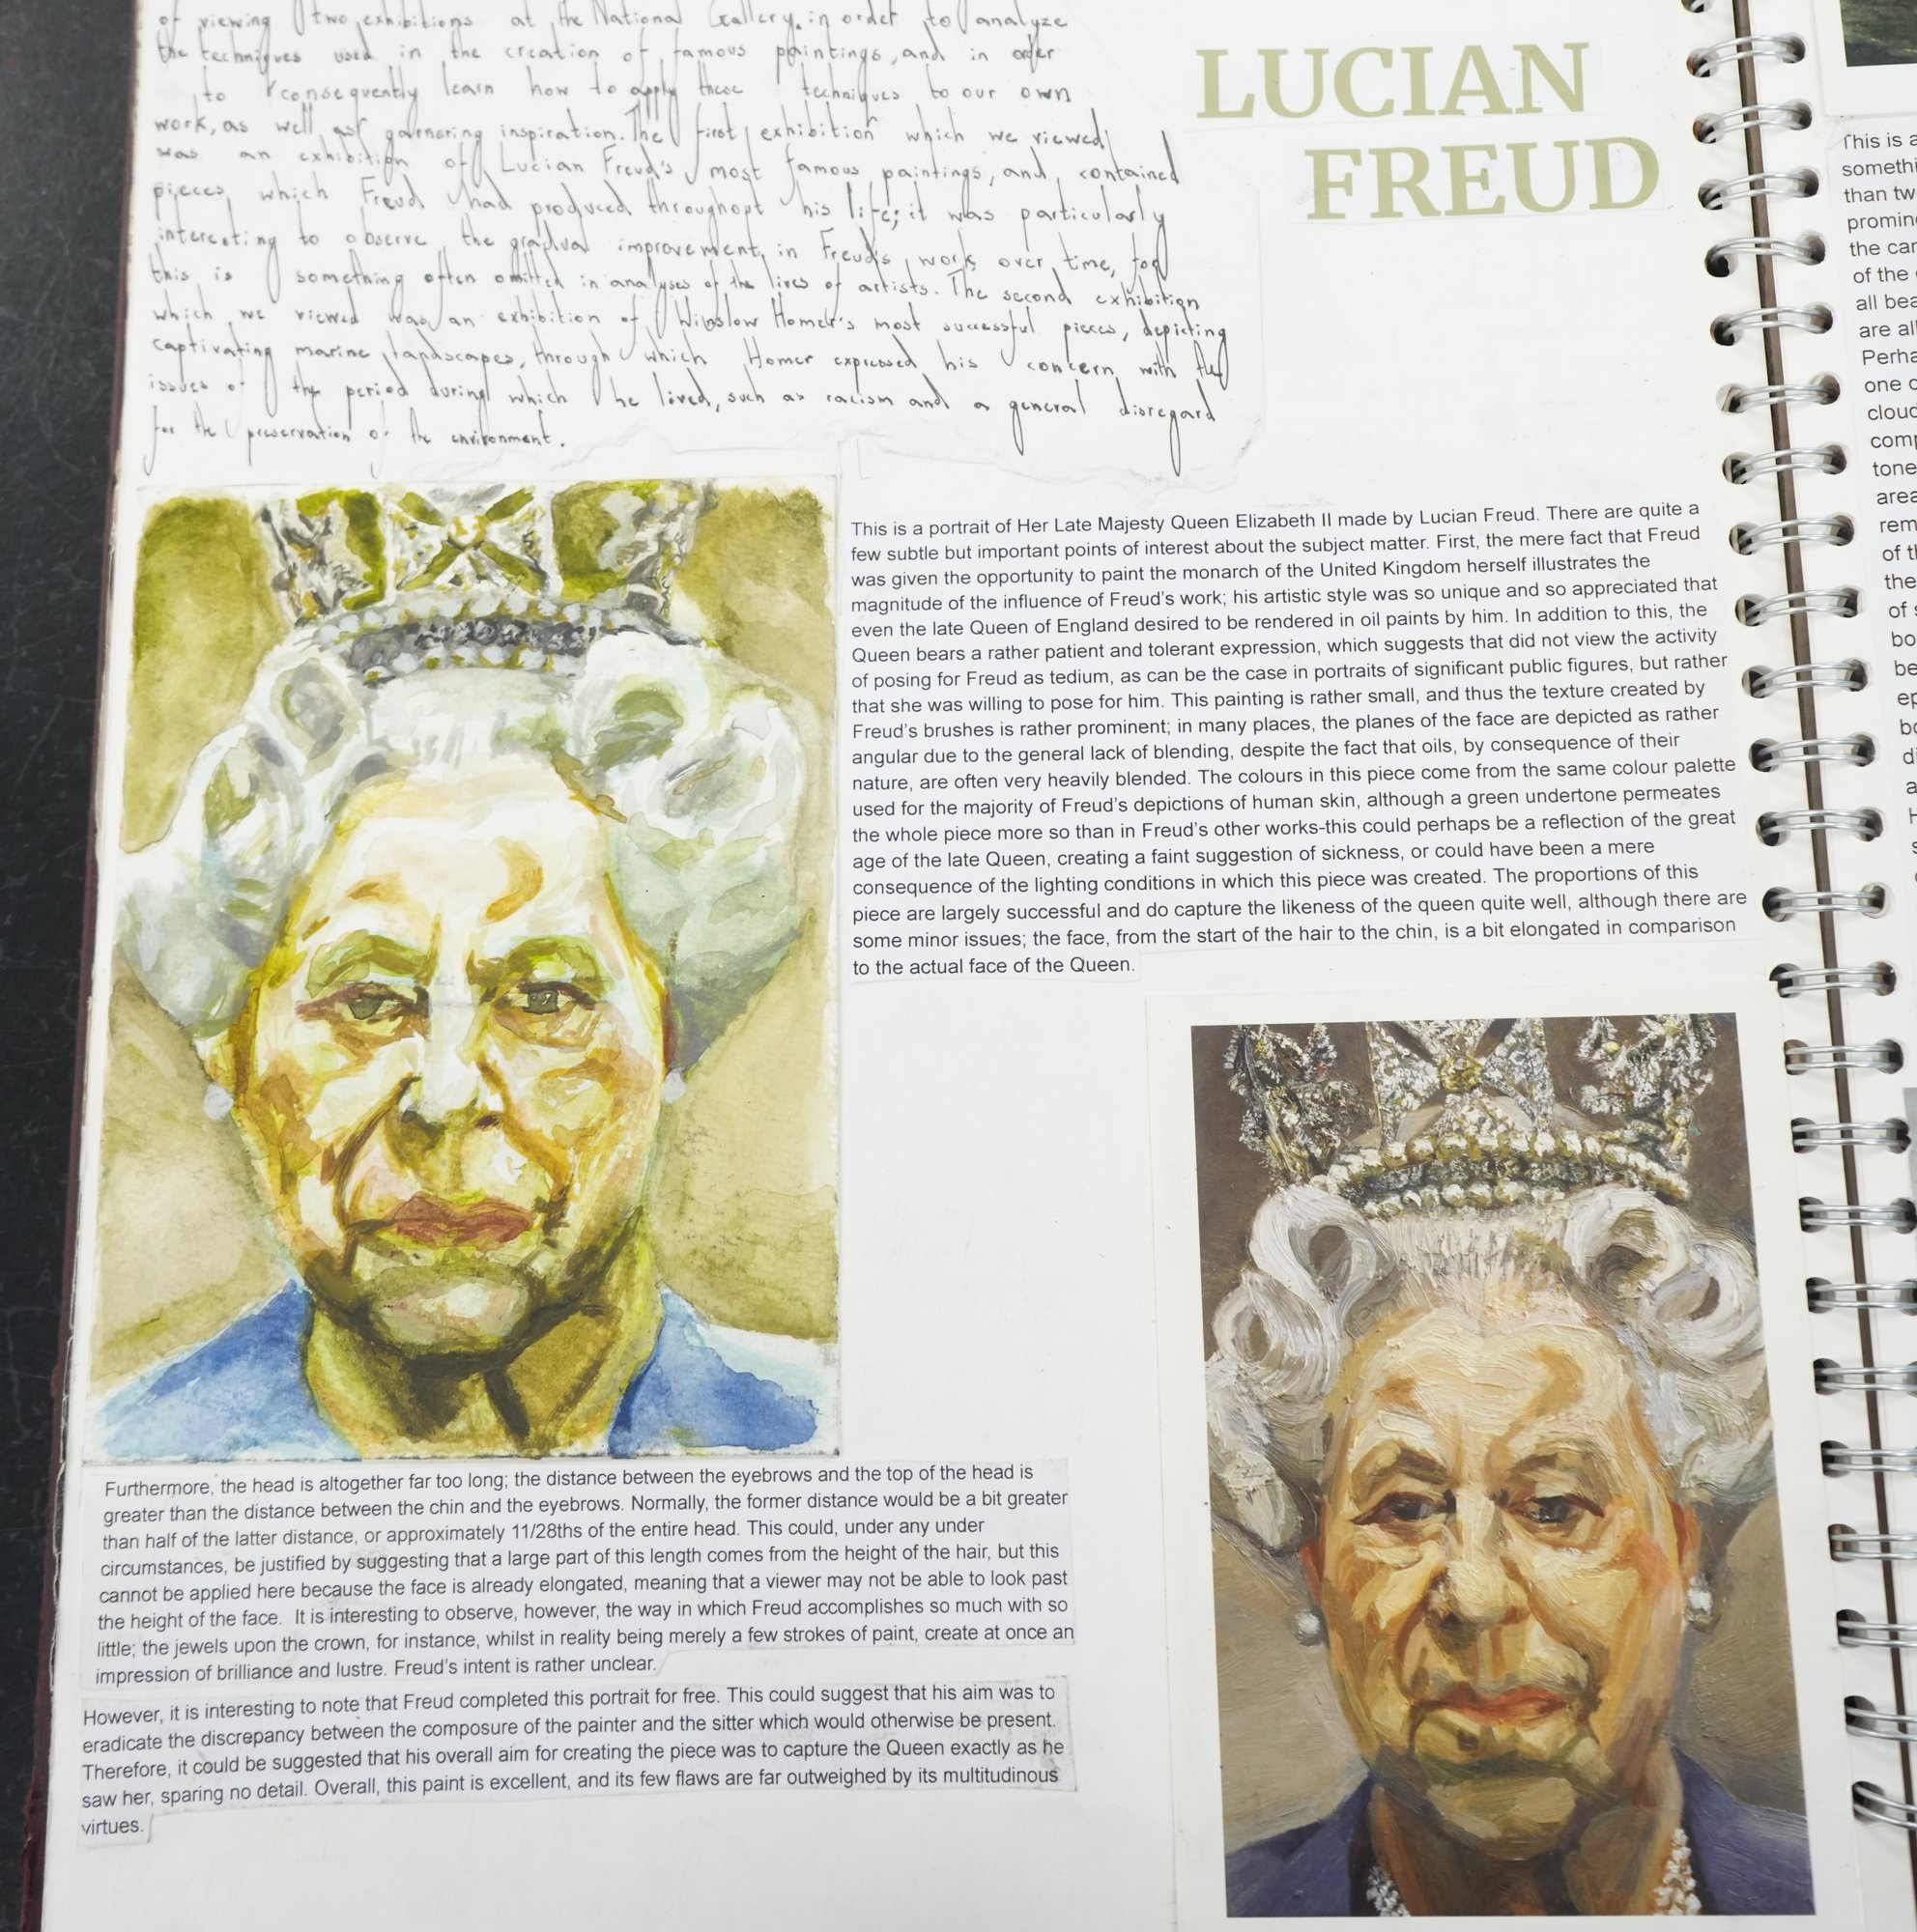 of viewing two exhibitions at the National Gallery, in order to analyze
the techniques used in the creation of famous paintings, and in order
to consequently learn how to apply these techniques to our own
work, as well as garnering inspiration. The first exhibition which we viewed
was an exhibition of Lucian Freud's most famous paintings, and contained
pieces which Freud had produced throughout his life; it was particularly
interesting to observe the gradual improvement in Freud's work over time, for
this is something often omitted in analyses of the lives of artists. The second exhibition
which we viewed was an exhibition of Winslow Homer's most successful pieces, depicting
captivating marine landscapes, through which Homer expressed his concern with the
issues of the period during which he lived, such as racism and a general disregard
for the preservation of the environment.
LUCIAN
FREUD
This is a portrait of Her Late Majesty Queen Elizabeth II made by Lucian Freud. There are quite a
few subtle but important points of interest about the subject matter. First, the mere fact that Freud
was given the opportunity to paint the monarch of the United Kingdom herself illustrates the
magnitude of the influence of Freud's work; his artistic style was so unique and so appreciated that
even the late Queen of England desired to be rendered in oil paints by him. In addition to this, the
Queen bears a rather patient and tolerant expression, which suggests that did not view the activity
of posing for Freud as tedium, as can be the case in portraits of significant public figures, but rather
that she was willing to pose for him. This painting is rather small, and thus the texture created by
Freud's brushes is rather prominent; in many places, the planes of the face are depicted as rather
angular due to the general lack of blending, despite the fact that oils, by consequence of their
nature, are often very heavily blended. The colours in this piece come from the same colour palette
used for the majority of Freud's depictions of human skin, although a green undertone permeates
the whole piece more so than in Freud's other works-this could perhaps be a reflection of the great
age of the late Queen, creating a faint suggestion of sickness, or could have been a mere
consequence of the lighting conditions in which this piece was created. The proportions of this
piece are largely successful and do capture the likeness of the queen quite well, although there are
some minor issues; the face, from the start of the hair to the chin, is a bit elongated in comparison
to the actual face of the Queen.
Furthermore, the head is altogether far too long; the distance between the eyebrows and the top of the head is
greater than the distance between the chin and the eyebrows. Normally, the former distance would be a bit greater
than half of the latter distance, or approximately 11/28ths of the entire head. This could, under any under
circumstances, be justified by suggesting that a large part of this length comes from the height of the hair, but this
cannot be applied here because the face is already elongated, meaning that a viewer may not be able to look past
the height of the face. It is interesting to observe, however, the way in which Freud accomplishes so much with so
little; the jewels upon the crown, for instance, whilst in reality being merely a few strokes of paint, create at once an
impression of brilliance and lustre. Freud's intent is rather unclear.
However, it is interesting to note that Freud completed this portrait for free. This could suggest that his aim was to
eradicate the discrepancy between the composure of the painter and the sitter which would otherwise be present.
Therefore, it could be suggested that his overall aim for creating the piece was to capture the Queen exactly as he
saw her, sparing no detail. Overall, this paint is excellent, and its few flaws are far outweighed by its multitudinous
virtues.
This is a
than
the
of the
all
are
Perha
one
cloud
comp
tone
area
rem
of
the
of